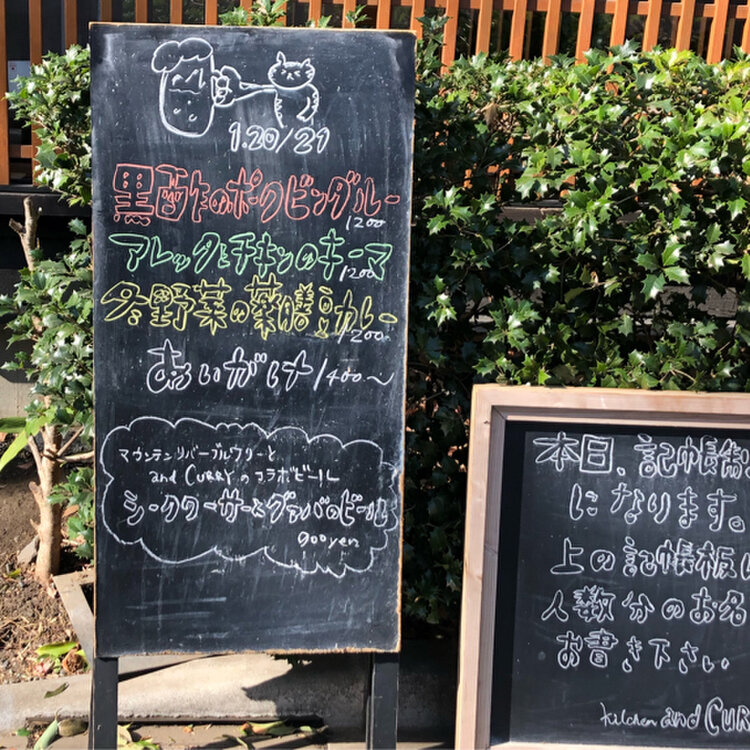 1.20/21
黒酢のポークビンダルー
1200
アレッタとチキンのキーマ
1200
冬野菜の薬膳豆カレー
1200
あいがけ 1400〜
マウンテンリバーブルワリーと
and CURRYのコラボビール
シークワーサーとグァバのビール
900yen
本日、記帳制
になります。
上の記帳板に
人数分のお名
お書き下さい
kitchen and CUR